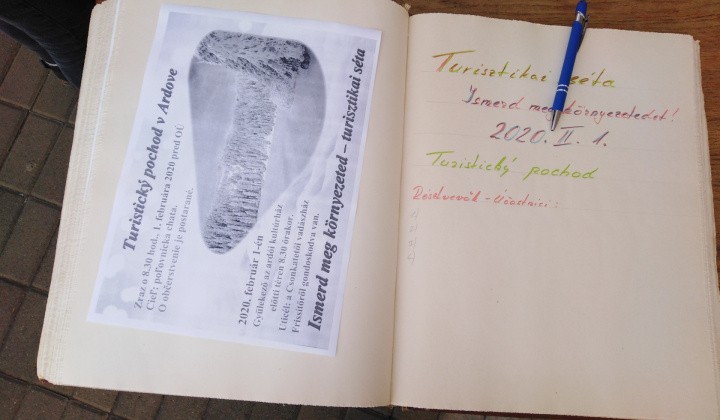 Turistický pochod v Ardove
Zraz o 8.30 hod., 1. februára 2020 pred OÚ
Cieľ: poľovnícka chata.
O občerstvenie je postarané.
2020. február 1-én
Gyülekező az ardói kultúrház
előtti téren 8:30 órakor.
Uticél: a Csonkatetői vadászház
Frissítőről gondoskodva van.
Ismerd meg környezeted – turisztikai séta
Turisztikai séta
Ismerd meg környezetedet!
2020. II. 1.
Turistický pochod
Résztvevők - Účastníci: